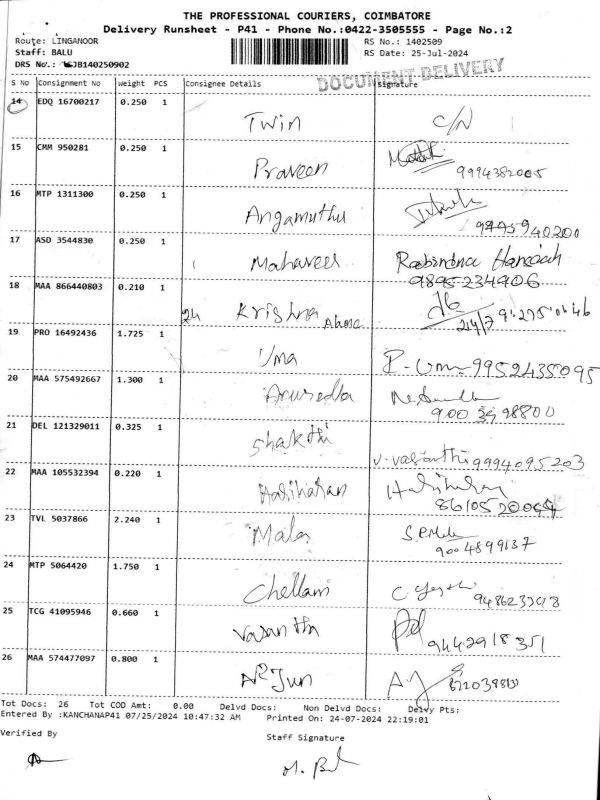 THE PROFESSIONAL COURIERS, COIMBATORE
Delivery Runsheet - P41 - Phone No.:0422-3505555 - Page No.:2
Route: LINGANOOR RS No.: 1402509
Staff: BALU RS Date: 25-Jul-2024
DRS No.: JB140250902
DOCUMENT DELIVERY
S No Consignment No Weight PCS Consignee Details Signature
14 EDQ 16700217 0.250 1 Twin C/N
15 CMM 950281 0.250 1 Praveen 9994382005
16 MTP 1311300 0.250 1 Angamuthu 9995940200
17 ASD 3544830 0.250 1 Mahaveer Rabindna
9895234906
18 MAA 866440803 0.210 1 24 Krishna
24/7
19 PRO 16492436 1.725 1 Uma P. Uma 9952435095
20 MAA 575492667 1.300 1
21 DEL 121329011 0.325 1 Shakthi V. Vasanthi 9994095203
22 MAA 105532394 0.220 1 Hariharan
23 TVL 5037866 2.240 1 Mala
9004899137
24 MTP 5064420 1.750 1 Chellam
25 TCG 41095946 0.660 1 Vasantha
9442918351
26 MAA 574477097 0.800 1 Arjun
Tot Docs: 26 Tot COD Amt: 0.00 Delvd Docs: Non Delvd Docs: Delvy Pts:
Entered By :KANCHANAP41 07/25/2024 10:47:32 AM Printed On: 24-07-2024 22:19:01
Verified By Staff Signature